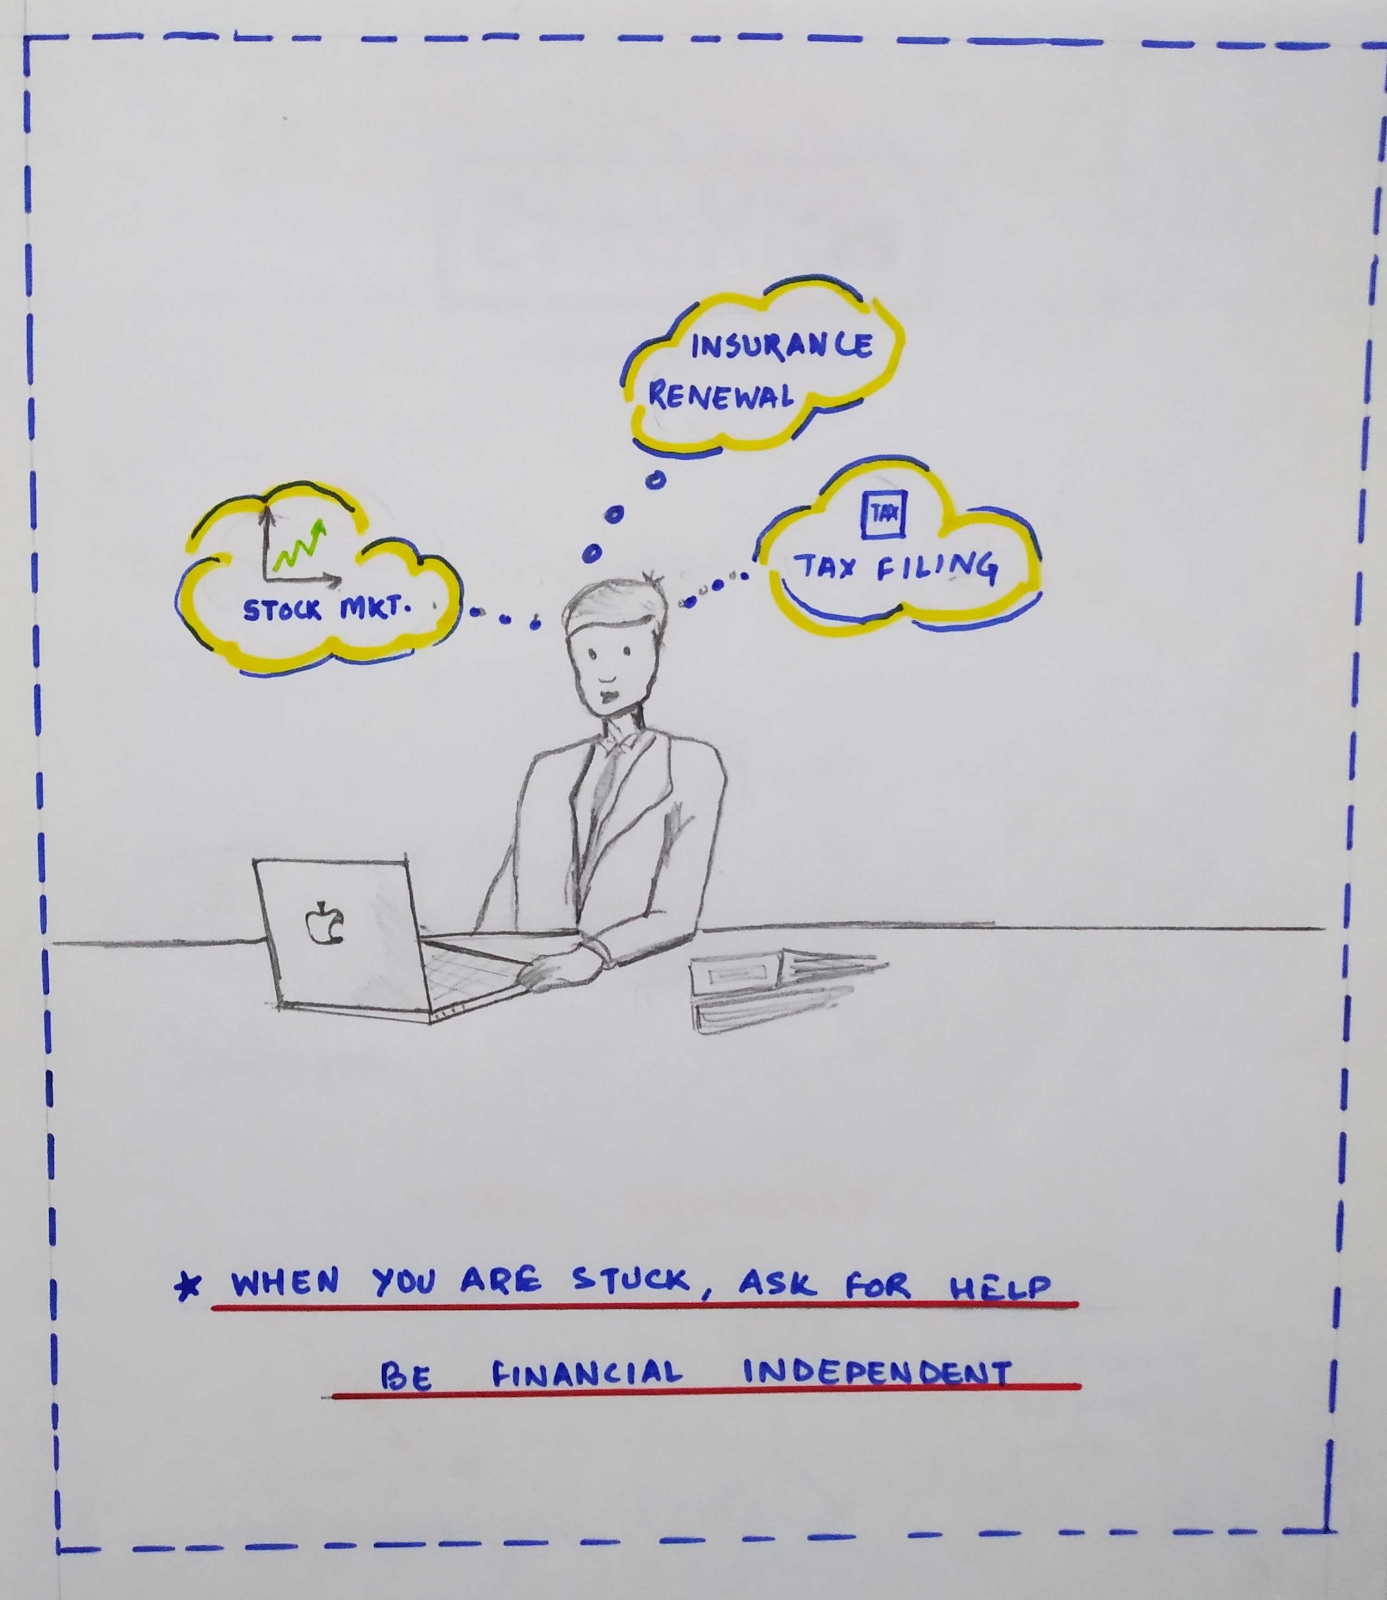 INSURANCE
RENEWAL
TAX
TAX FILING
STOCK MKT.
* WHEN YOU ARE STUCK, ASK FOR HELP
BE FINANCIAL INDEPENDENT